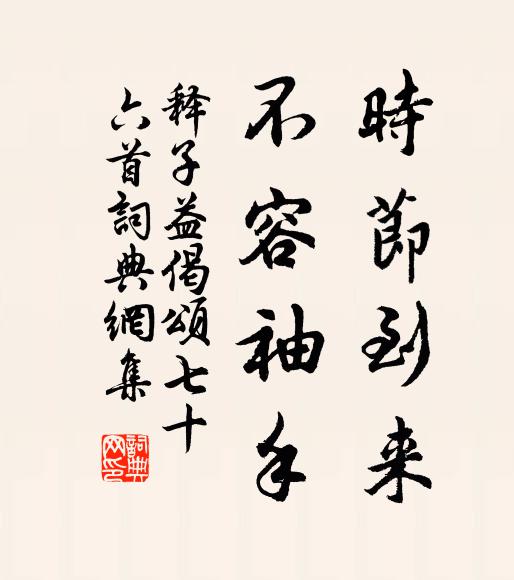 時節到来
不容袖手
释子益偈頌七十
六首詞典網集
詞典网印